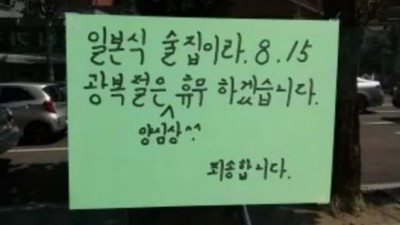 일본식 술집이라. 8.15
광복절은 휴무 하겠습니다.
양심상^^
죄송합니다.